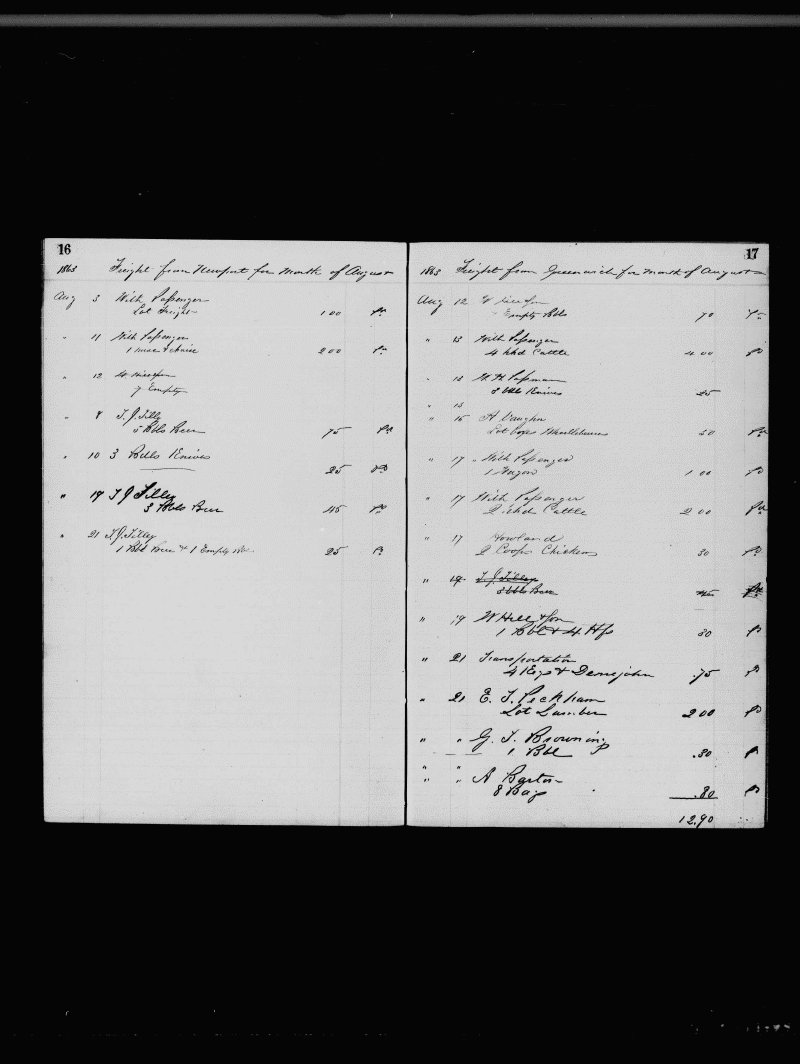 16
1863 Freight from Newport for Month of August
Aug 3 With Passenger
Lot Freight 1 00 Pd
" 11 With Passenger
1 Horse & Chaise 2 00 Pd
" 12
7 Empty
" 8 T. J. Tilly
5 Bbls Beer 75 Pd
" 10 3 Bdls Knives 25 Pd
" 19 T J Tilley
3 Bbls Beer 45 Pd
" 21 T. J. Tilley
1 Bbl Beer & 1 Empty Bbl 25 Pd
17
1863 Freight from Greenwich for Month of August
Aug 12
Empty Bbls 70 Pd
" 13 With Passenger
4 hhd Cattle 4 00 Pd
" 13
3 bdls Knives 25
" 15
" 15 A Vaughn
Lot 50 Pd
" 17 " With Passenger
1 Wagon 1 00 Pd
" 17 With Passenger
2 hhd Cattle 2 00 Pd
" 17 Howland
2 Coops Chickens 30 Pd
" 19 T. J. Tilley
3 bbls Beer 45 Pd
" 19 W Hill & Son
1 Bbl & 4 Hf 30 Pd
" 21 Transportation
4 Kegs & Demejohn .75 Pd
" 21 E. T. Peckham
Lot Lumber 2 00 Pd
" " G. T. Browning
1 Bbl .30 P
" "
" " A Barton
8 Bag .80 Pd
12.90